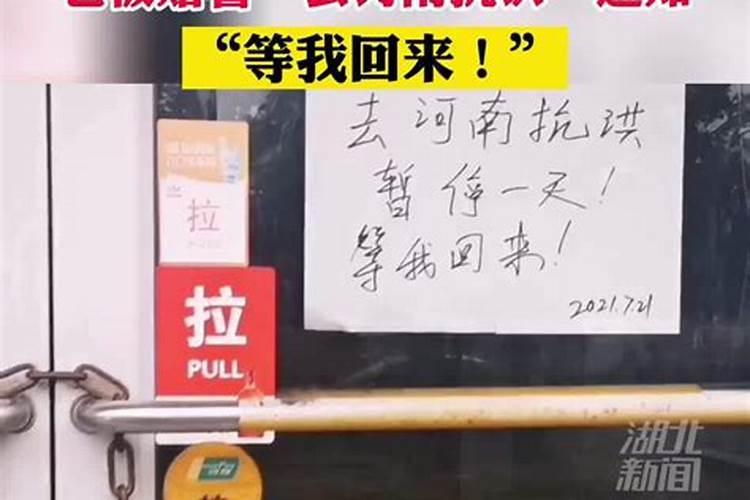 “等我回来！”
去河南抗洪
暂停一天！
等我回来！
2021.7.21
拉
拉
PULL
湖北
新闻